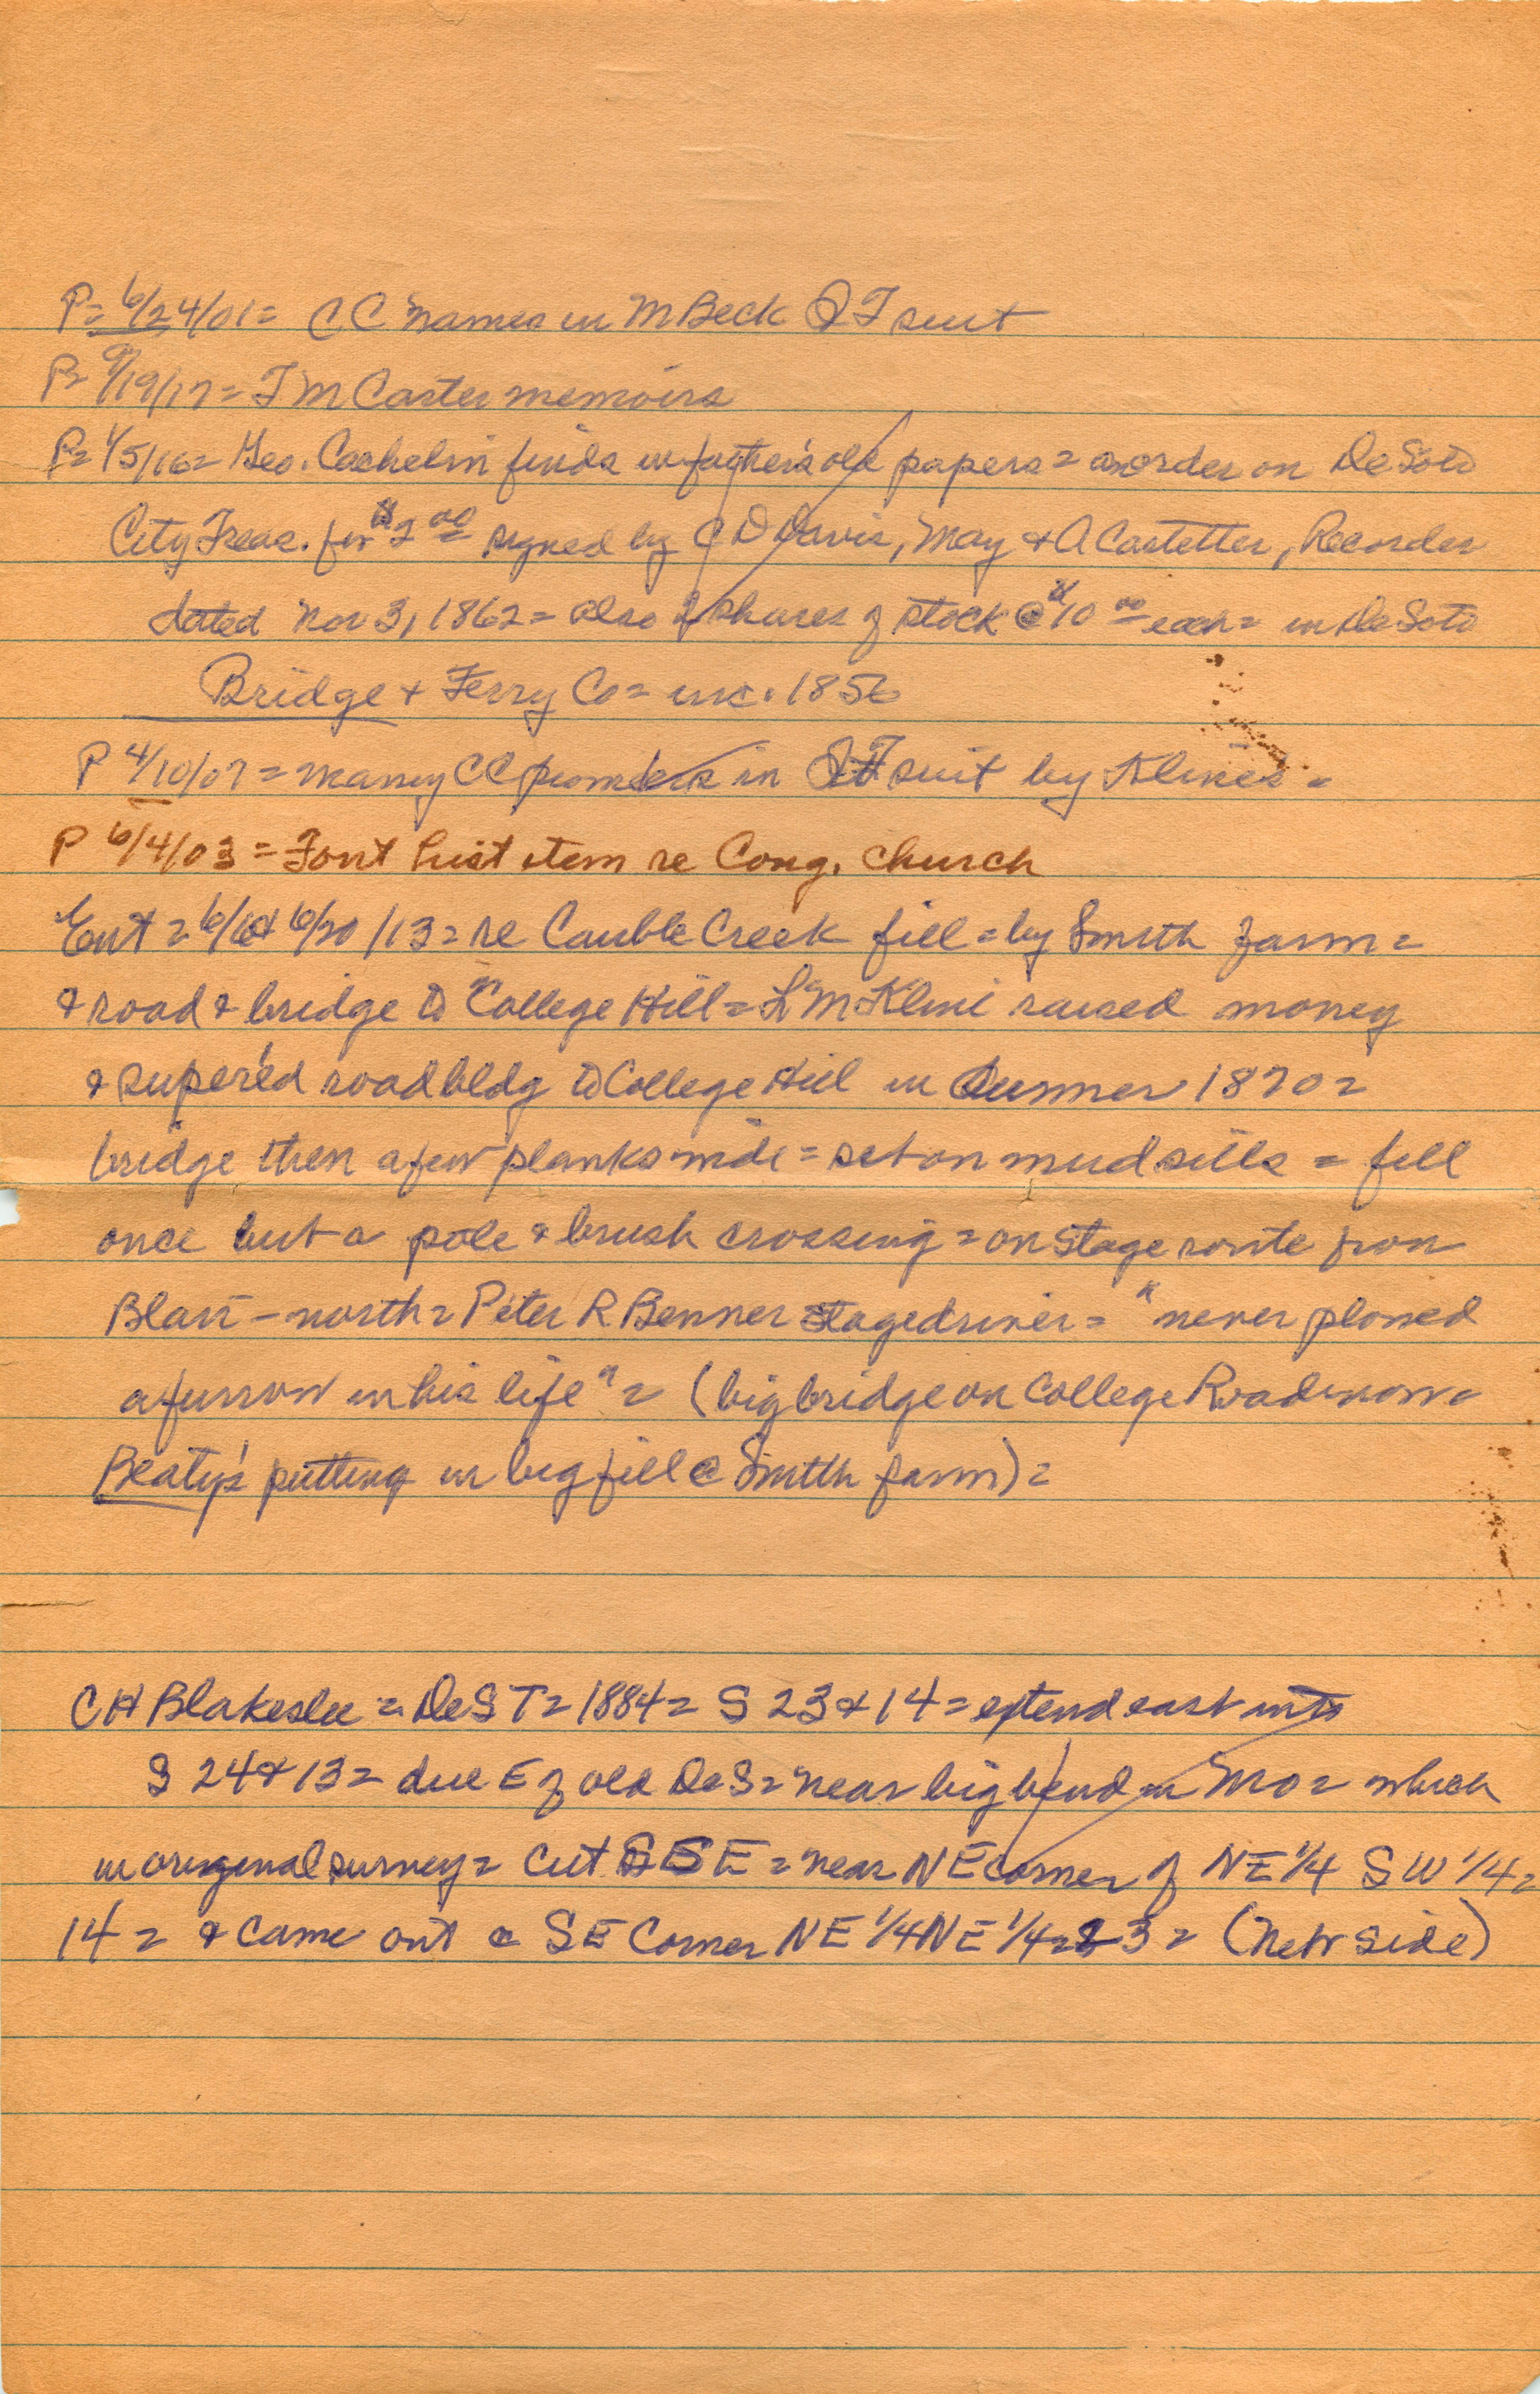 P= 6/24/01= CC names in M Beck QT suit
P= 9/19/17= T M Carter memoirs
P= 1/5/16= Geo. Cachelin finds in father's old papers= an order on DeSoto
City Treas. for $2 00 signed by C D Davis, May & A Castetter, Recorder
dated Nov 3, 1862= also 2 shares of stock @ $10 00 each= in DeSoto
Bridge & Ferry Co= inc. 1856
P 4/10/07= many CC pioneers in QT suit by Klines=
P 6/4/03= Font hist item re Cong. church
Ent= 6/6& 6/20/13= re Cauble Creek fill= by Smith farm=
& road & bridge to "College Hill= L M Kline raised money
& super'd road bldg to College Hill in Summer 1870=
bridge then a few planks wide= set on mud sills= fill
once but a pole & brush crossing= on stage route from
Blair- north= Peter R Benner stagedriver= "never plowed
a furrow in his life"= (big bridge on College Road now=
Beaty's putting in big fill @ Smith farm)=
C H Blakeslee= DeS T= 1884= S 23 & 14= extend east into
S 24 & 13= due E of old DeS= near big bend in MO= which
in original survey= cut SE= near NE corner of NE 1/4 SW 1/4=
14= & came out @ SE Corner NE 1/4 NE 1/4= 23= (Nebr side)